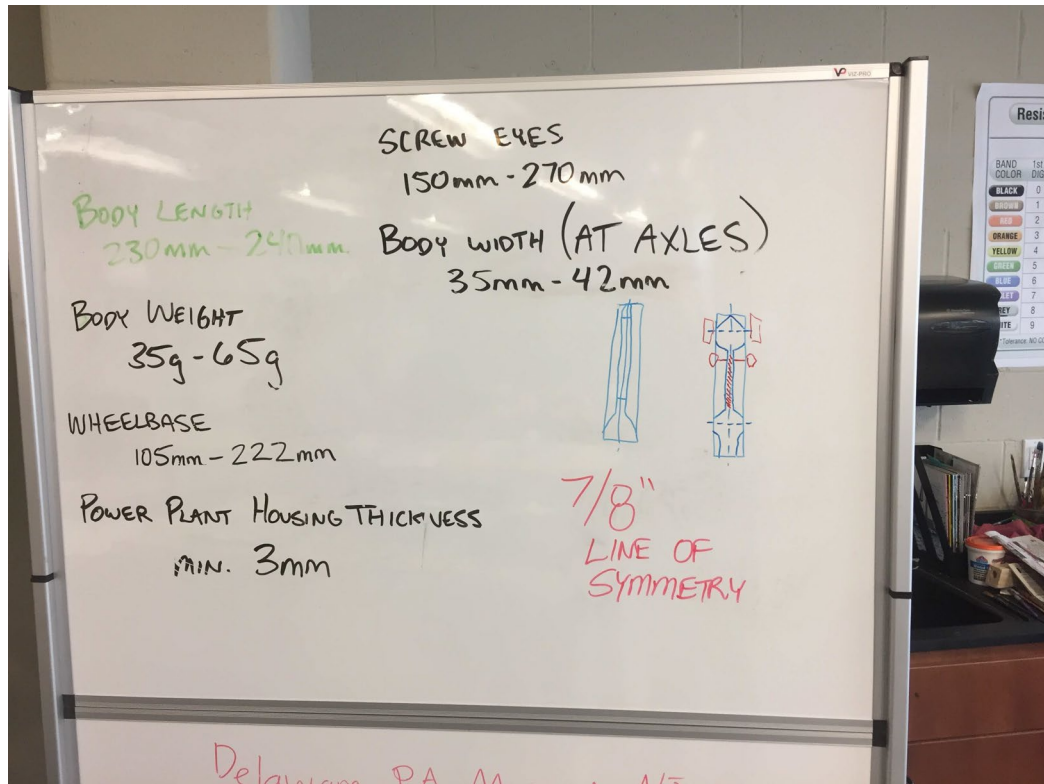 VP VIZ-PRO
SCREW EYES
150mm - 270mm
BODY LENGTH
230mm - 240mm.
BODY WIDTH (AT AXLES)
35mm - 42mm
BODY WEIGHT
35g - 65g
WHEELBASE
105mm - 222mm
POWER PLANT HOUSING THICKNESS
MIN. 3mm
7/8"
LINE OF
SYMMETRY
Delaware PA
Resis
BAND COLOR 1st DIG
BLACK 0
BROWN 1
RED 2
ORANGE 3
YELLOW 4
GREEN 5
BLUE 6
LET 7
REY 8
ITE 9
*Tolerance NO CO